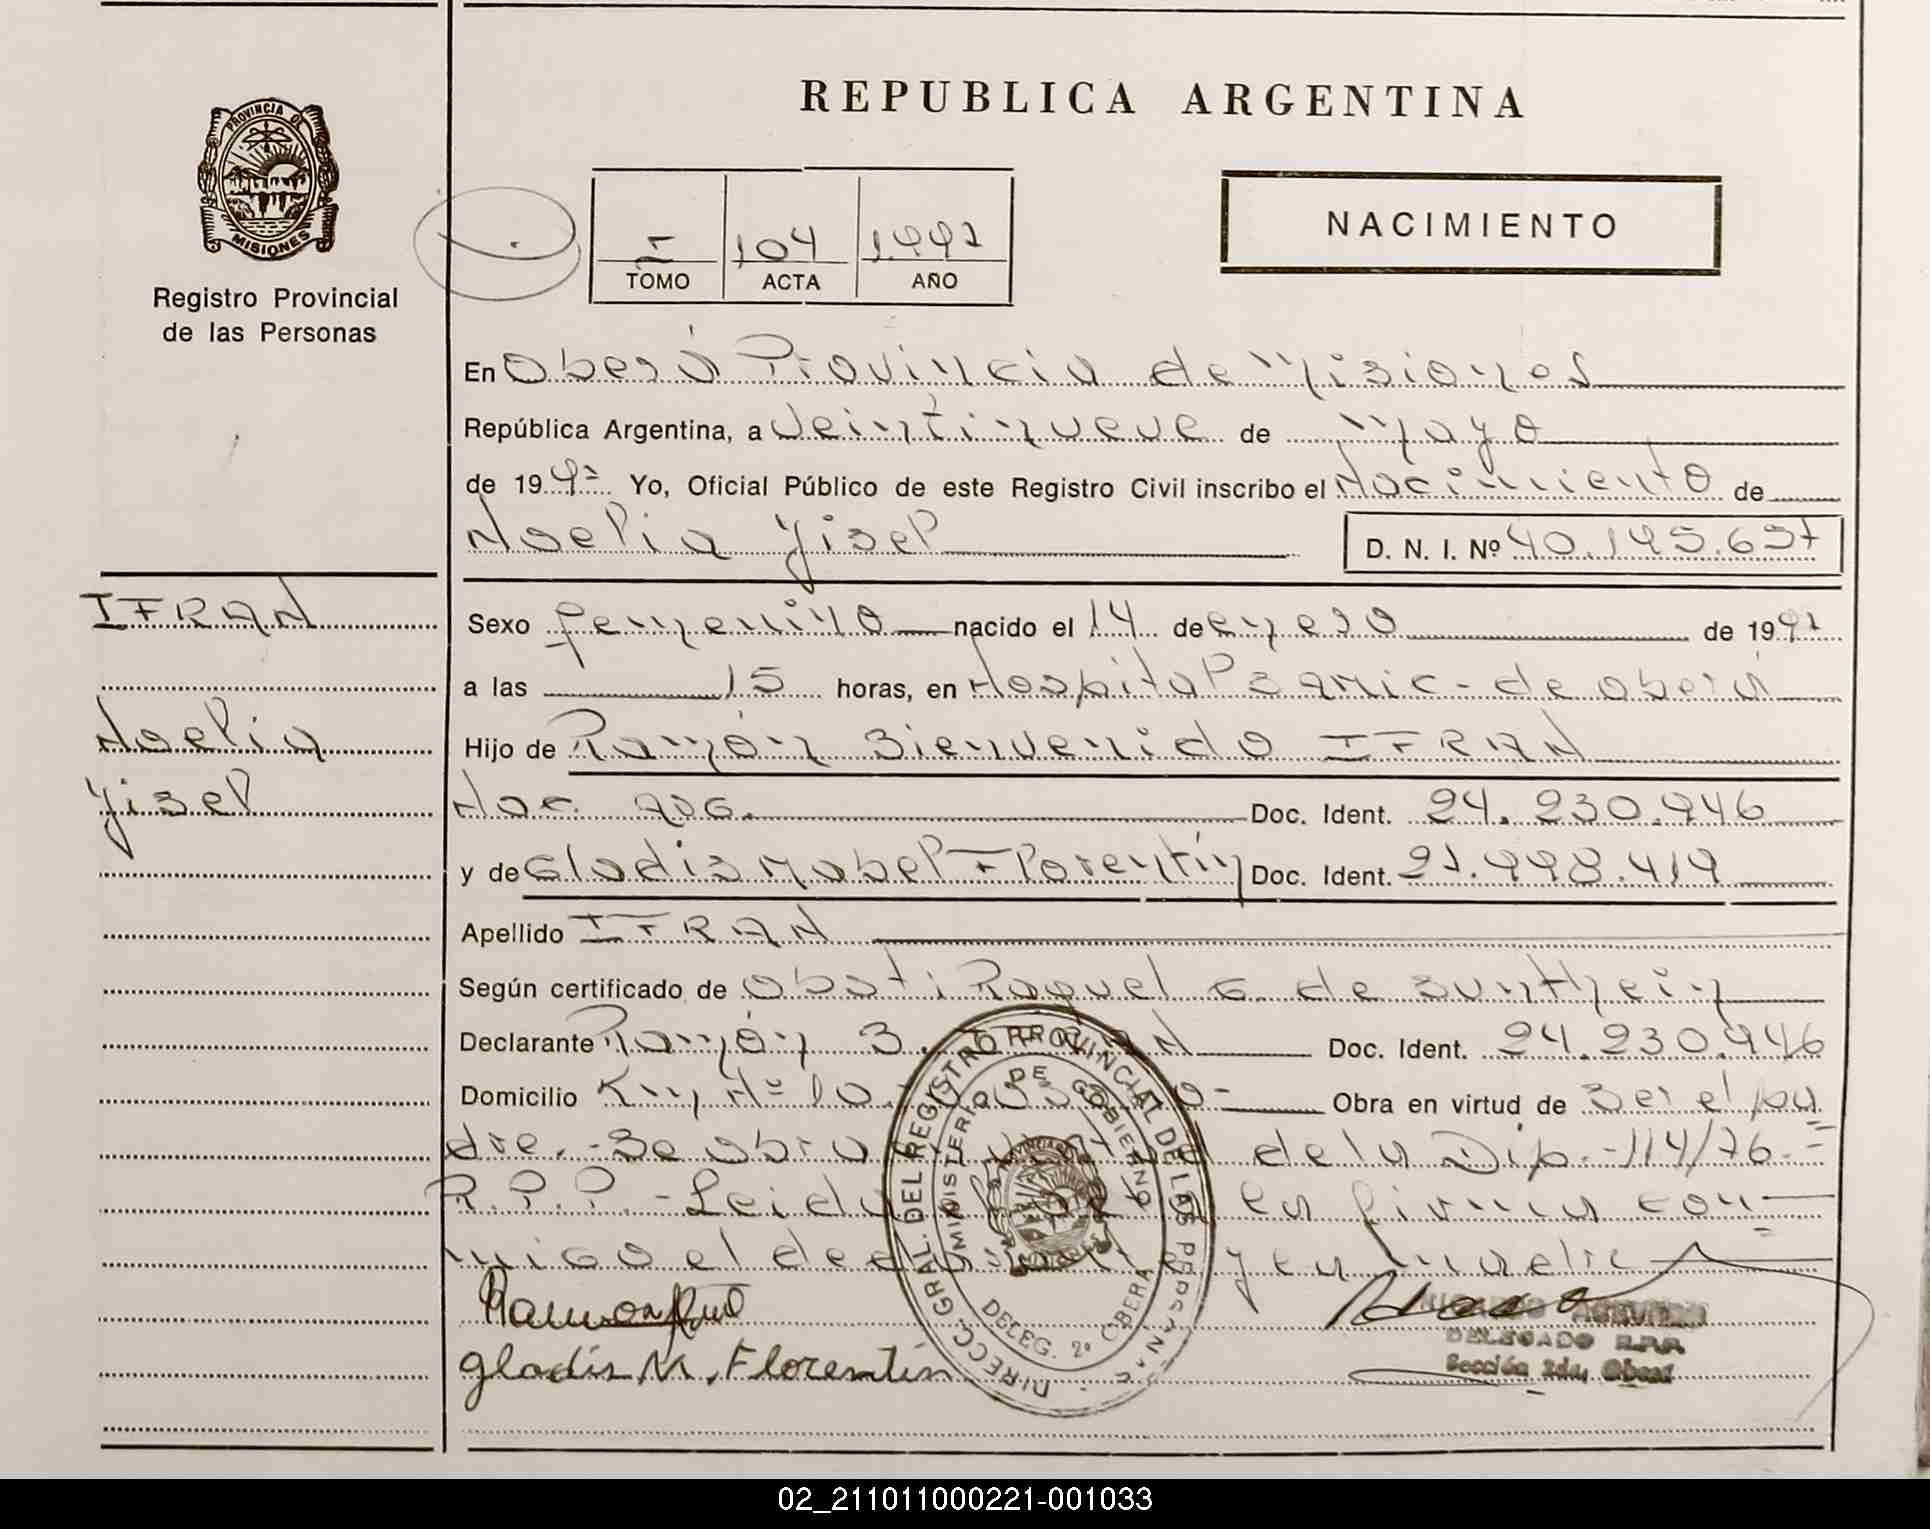 REPUBLICA ARGENTINA
PROVINCIA DE
MISIONES
Registro Provincial
de las Personas
I 104 1.997
TOMO ACTA AÑO
NACIMIENTO
En Oberá Provincia de Misiones
República Argentina, a Veintinueve de Mayo
de 1997 Yo, Oficial Público de este Registro Civil inscribo el Nacimiento de
Noelia Yisel
D. N. I. Nº 40.195.697
IFRAN
Noelia
Yisel
Sexo femenino nacido el 14 de enero de 1997
a las 15 horas, en Hospital Samic - de Oberá
Hijo de Ramón Bienvenido IFRAN
Nac. ARG. Doc. Ident. 24.230.946
y de Gladis Mabel Florentín Doc. Ident. 21.998.419
Apellido IFRAN
Según certificado de Obst. Raquel G. de Sunthein
Declarante Ramón B. IFRAN Doc. Ident. 24.230.946
Domicilio Km Nº 10. Obra en virtud de Ser el pa
dre.- Se obra de la Dip.-114/76.=
R.P.P.- Leida el acta la firman con
migo el declarante y la madre
Ramon Ifran
Gladis M. Florentín
DIRECC. GRAL. DEL REGISTRO PROVINCIAL DE LAS PERSONAS
MINISTERIO DE GOBIERNO
DELEG. 2º OBERA
DELEGADO R.P.P.
Sección 2da. Oberá
02_211011000221-001033